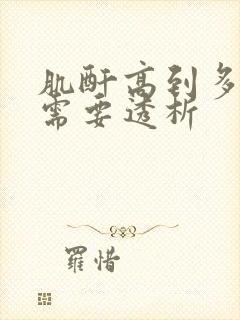 肌酐高到多
需要透析
羅惜